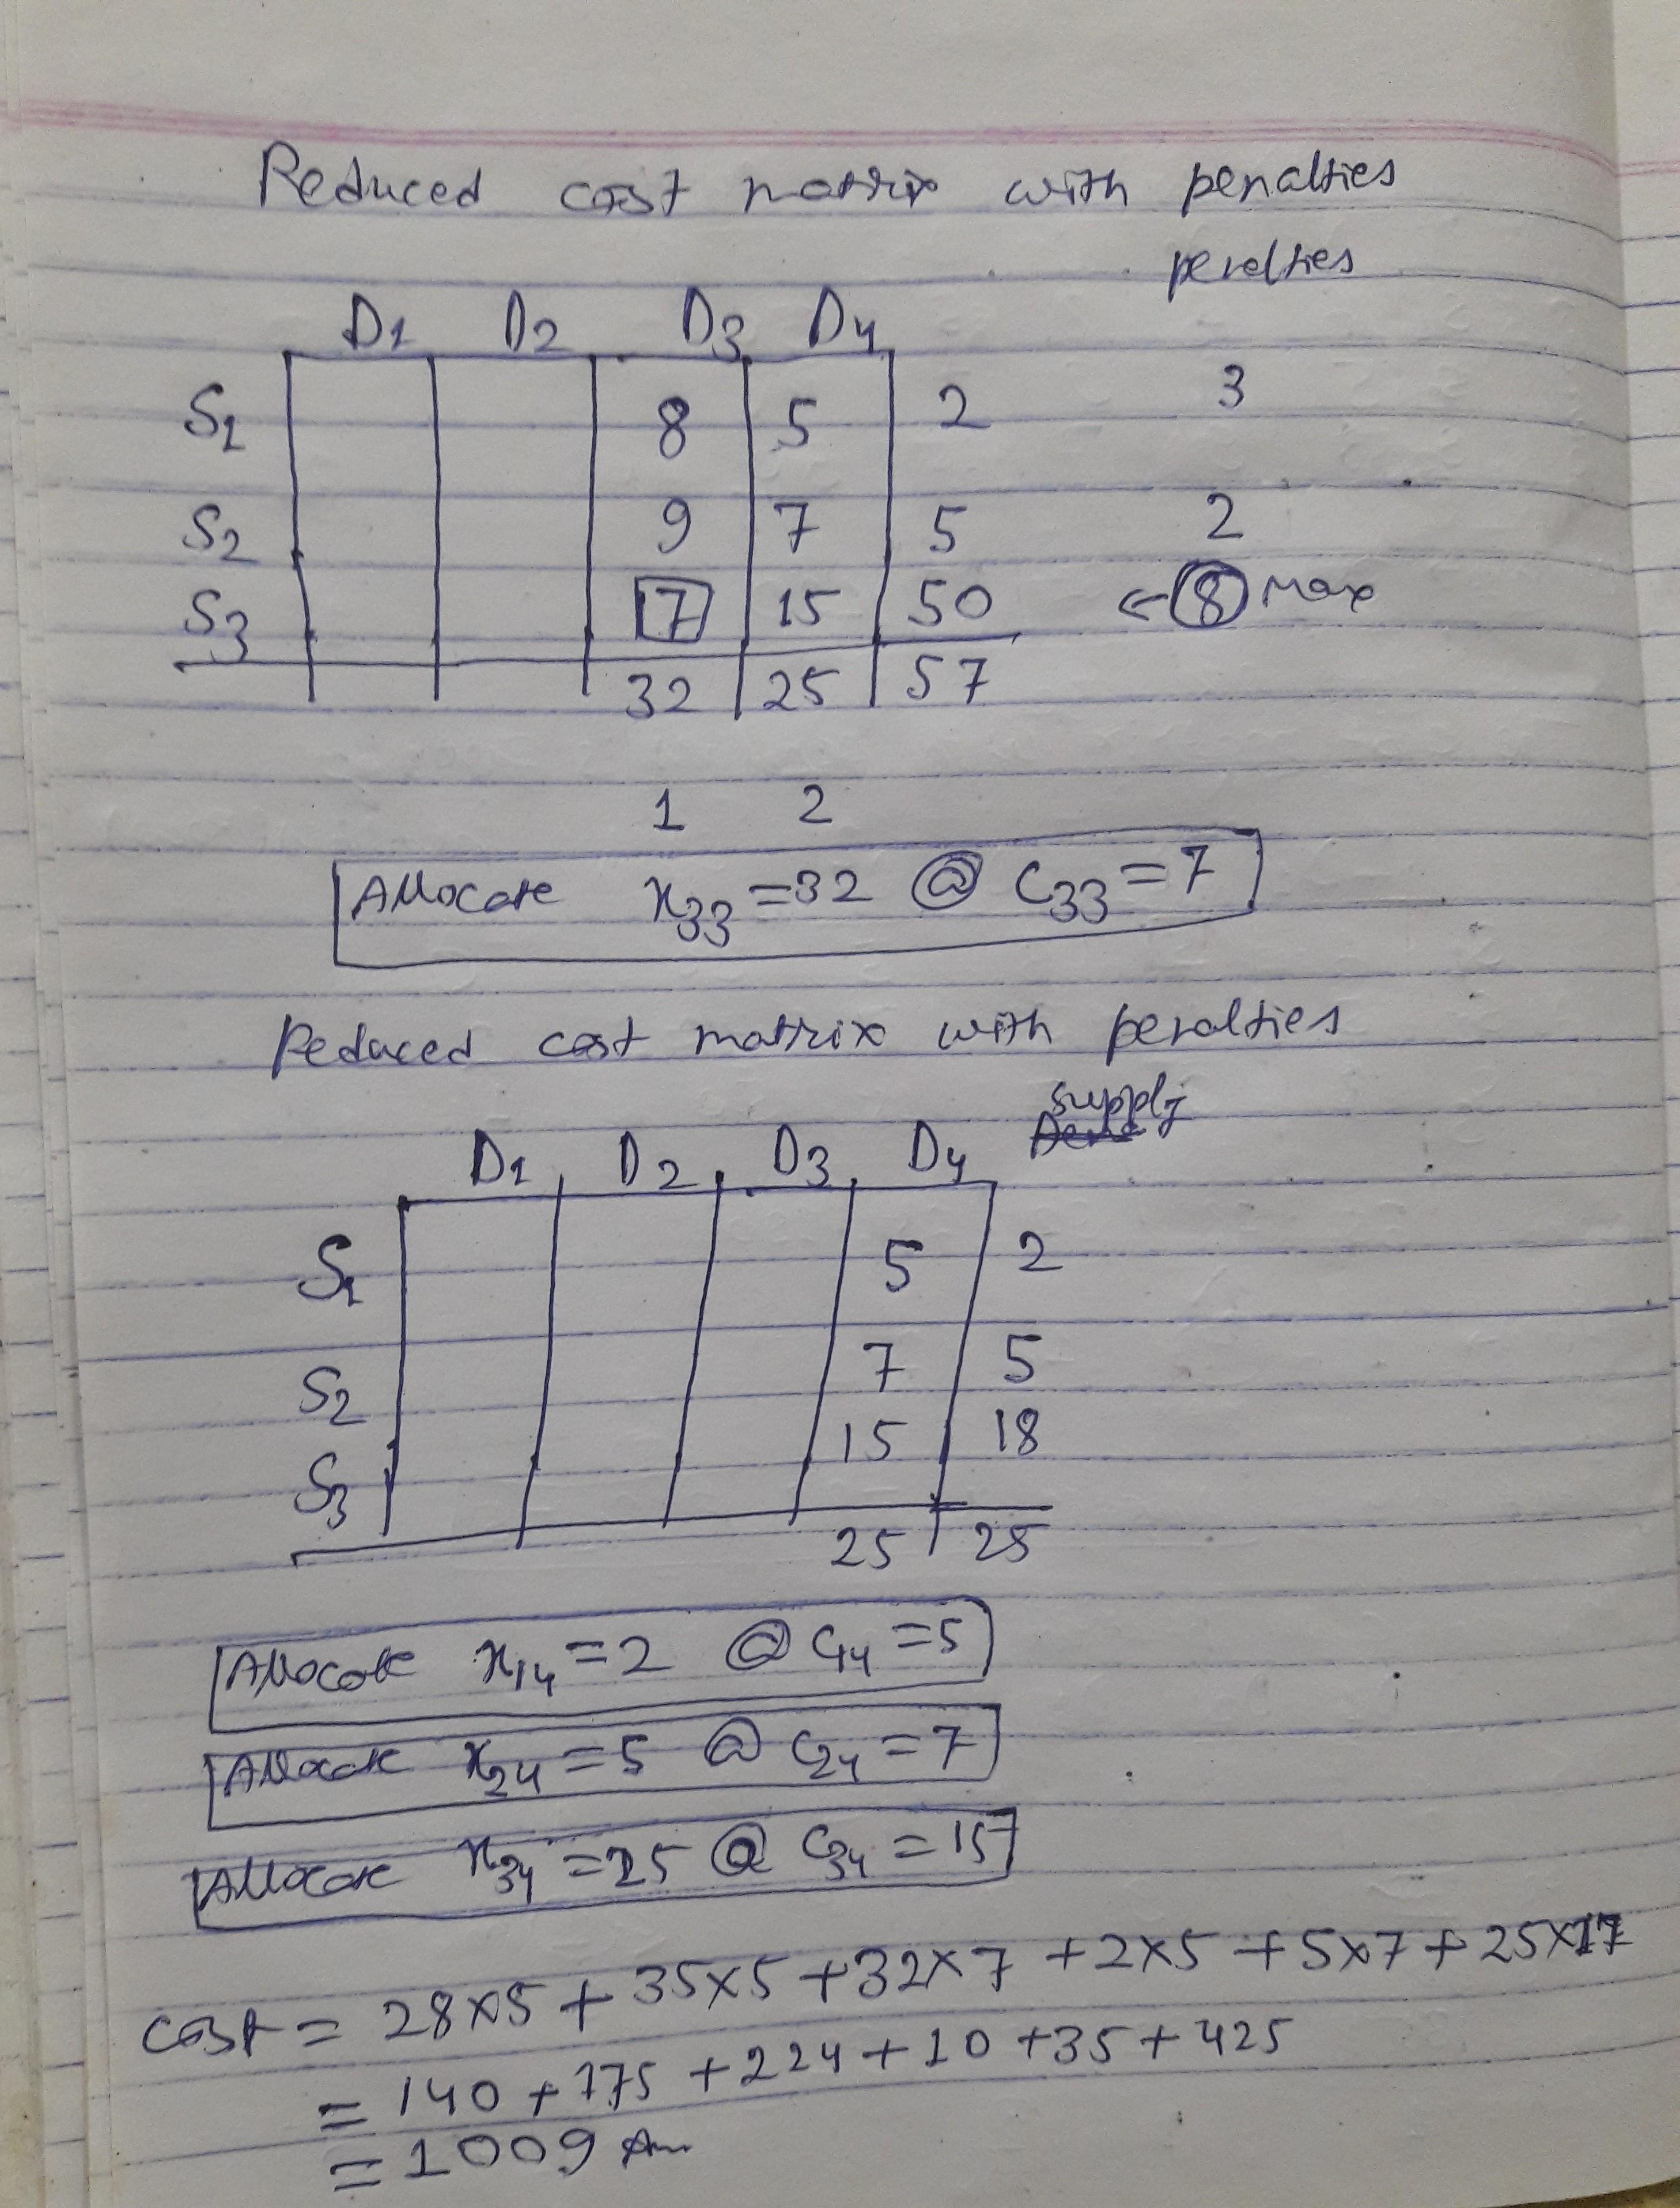 Reduced cost matrix with penalties
penelties
D1 D2 D3 D4
S1 8 5 2 3
S2 9 7 5 2
S3 7 15 50 ← 8 Max
32 25 57
1 2
Allocate x33 = 32 @ C33 = 7
Reduced cost matrix with penalties
supply
D1 D2 D3 D4
S1 5 2
S2 7 5
S3 15 18
25 25
Allocate x14 = 2 @ C14 = 5
Allocate x24 = 5 @ C24 = 7
Allocate x34 = 25 @ C34 = 15
Cost = 28×5 + 35×5 + 32×7 + 2×5 + 5×7 + 25×17
= 140 + 175 + 224 + 10 + 35 + 425
= 1009 An